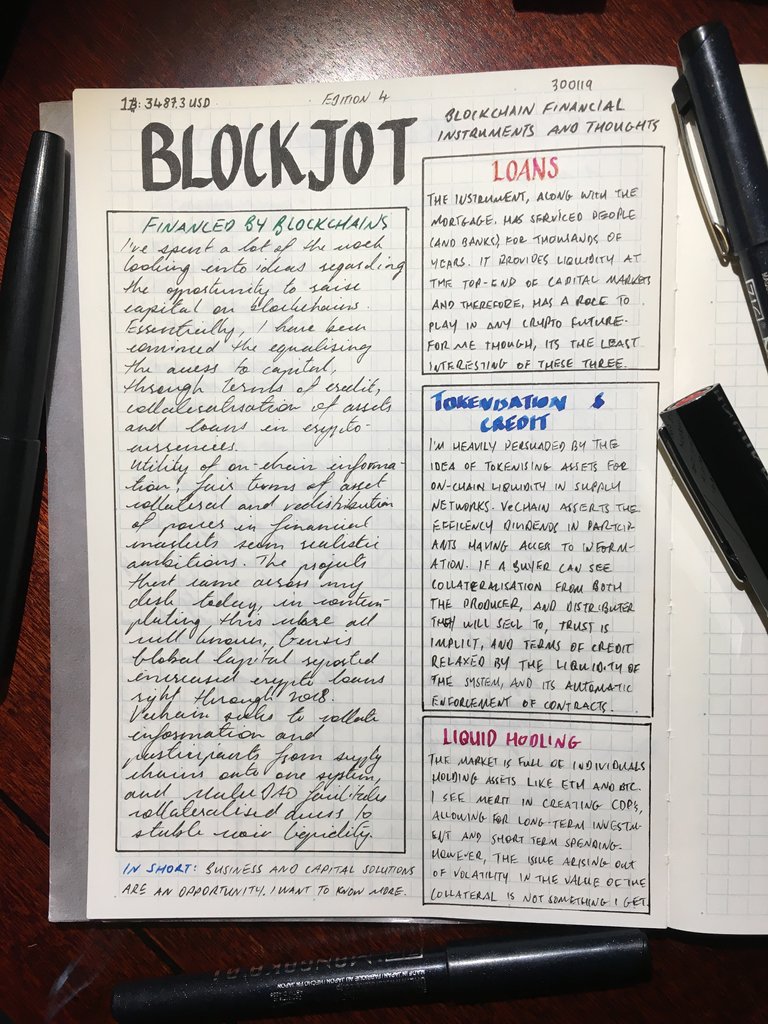 1₿: 3487.3 USD
EDITION 4
300119
BLOCKJOT
BLOCKCHAIN FINANCIAL
INSTRUMENTS AND THOUGHTS
FINANCED BY BLOCKCHAINS
I've spent a lot of the week
looking into ideas regarding
the opportunity to raise
capital on blockchains.
Essentially, I have been
convinced the equalising
the access to capital,
through terms of credit,
collateralisation of assets
and loans in crypto-
currencies.
Utility of on-chain informa-
tion, fair terms of asset
collateral and redistribution
of power in financial
markets seem realistic
ambitions. The projects
that came across my
desk today, in contem-
plating this were all
well known, Gensis
Global Capital reported
increased crypto loans
right through 2018.
Vechain seeks to collate
information and
participants from supply
chains onto one system,
and MakerDAO facilitates
collateralised access to
stable coin liquidity.
IN SHORT: BUSINESS AND CAPITAL SOLUTIONS
ARE AN OPPORTUNITY. I WANT TO KNOW MORE.
LOANS
THE INSTRUMENT, ALONG WITH THE
MORTGAGE, HAS SERVICED PEOPLE
(AND BANKS) FOR THOUSANDS OF
YEARS. IT PROVIDES LIQUIDITY AT
THE TOP-END OF CAPITAL MARKETS
AND THEREFORE, HAS A ROLE TO
PLAY IN ANY CRYPTO FUTURE.
FOR ME THOUGH, ITS THE LEAST
INTERESTING OF THESE THREE.
TOKENISATION &
CREDIT
I'M HEAVILY PERSUADED BY THE
IDEA OF TOKENISING ASSETS FOR
ON-CHAIN LIQUIDITY IN SUPPLY
NETWORKS. VeCHAIN ASSERTS THE
EFFICENCY DIVIDENDS IN PARTCIP-
ANTS HAVING ACCESS TO INFORM-
ATION. IF A BUYER CAN SEE
COLLATERALISATION FROM BOTH
THE PRODUCER, AND DISTRIBUTER
THEY WILL SELL TO, TRUST IS
IMPLICT, AND TERMS OF CREDIT
RELAXED BY THE LIQUIDITY OF
THE SYSTEM, AND ITS AUTOMATIC
ENFORCEMENT OF CONTRACTS.
LIQUID HODLING
THE MARKET IS FULL OF INDIVIDUALS
HOLDING ASSETS LIKE ETH AND BTC.
I SEE MERIT IN CREATING CDPs,
ALLOWING FOR LONG-TERM INVESTM-
ENT AND SHORT TERM SPENDING.
HOWEVER, THE ISSUE ARISING OUT
OF VOLATILITY IN THE VALUE OF THE
COLLATERAL IS NOT SOMETHING I GET.